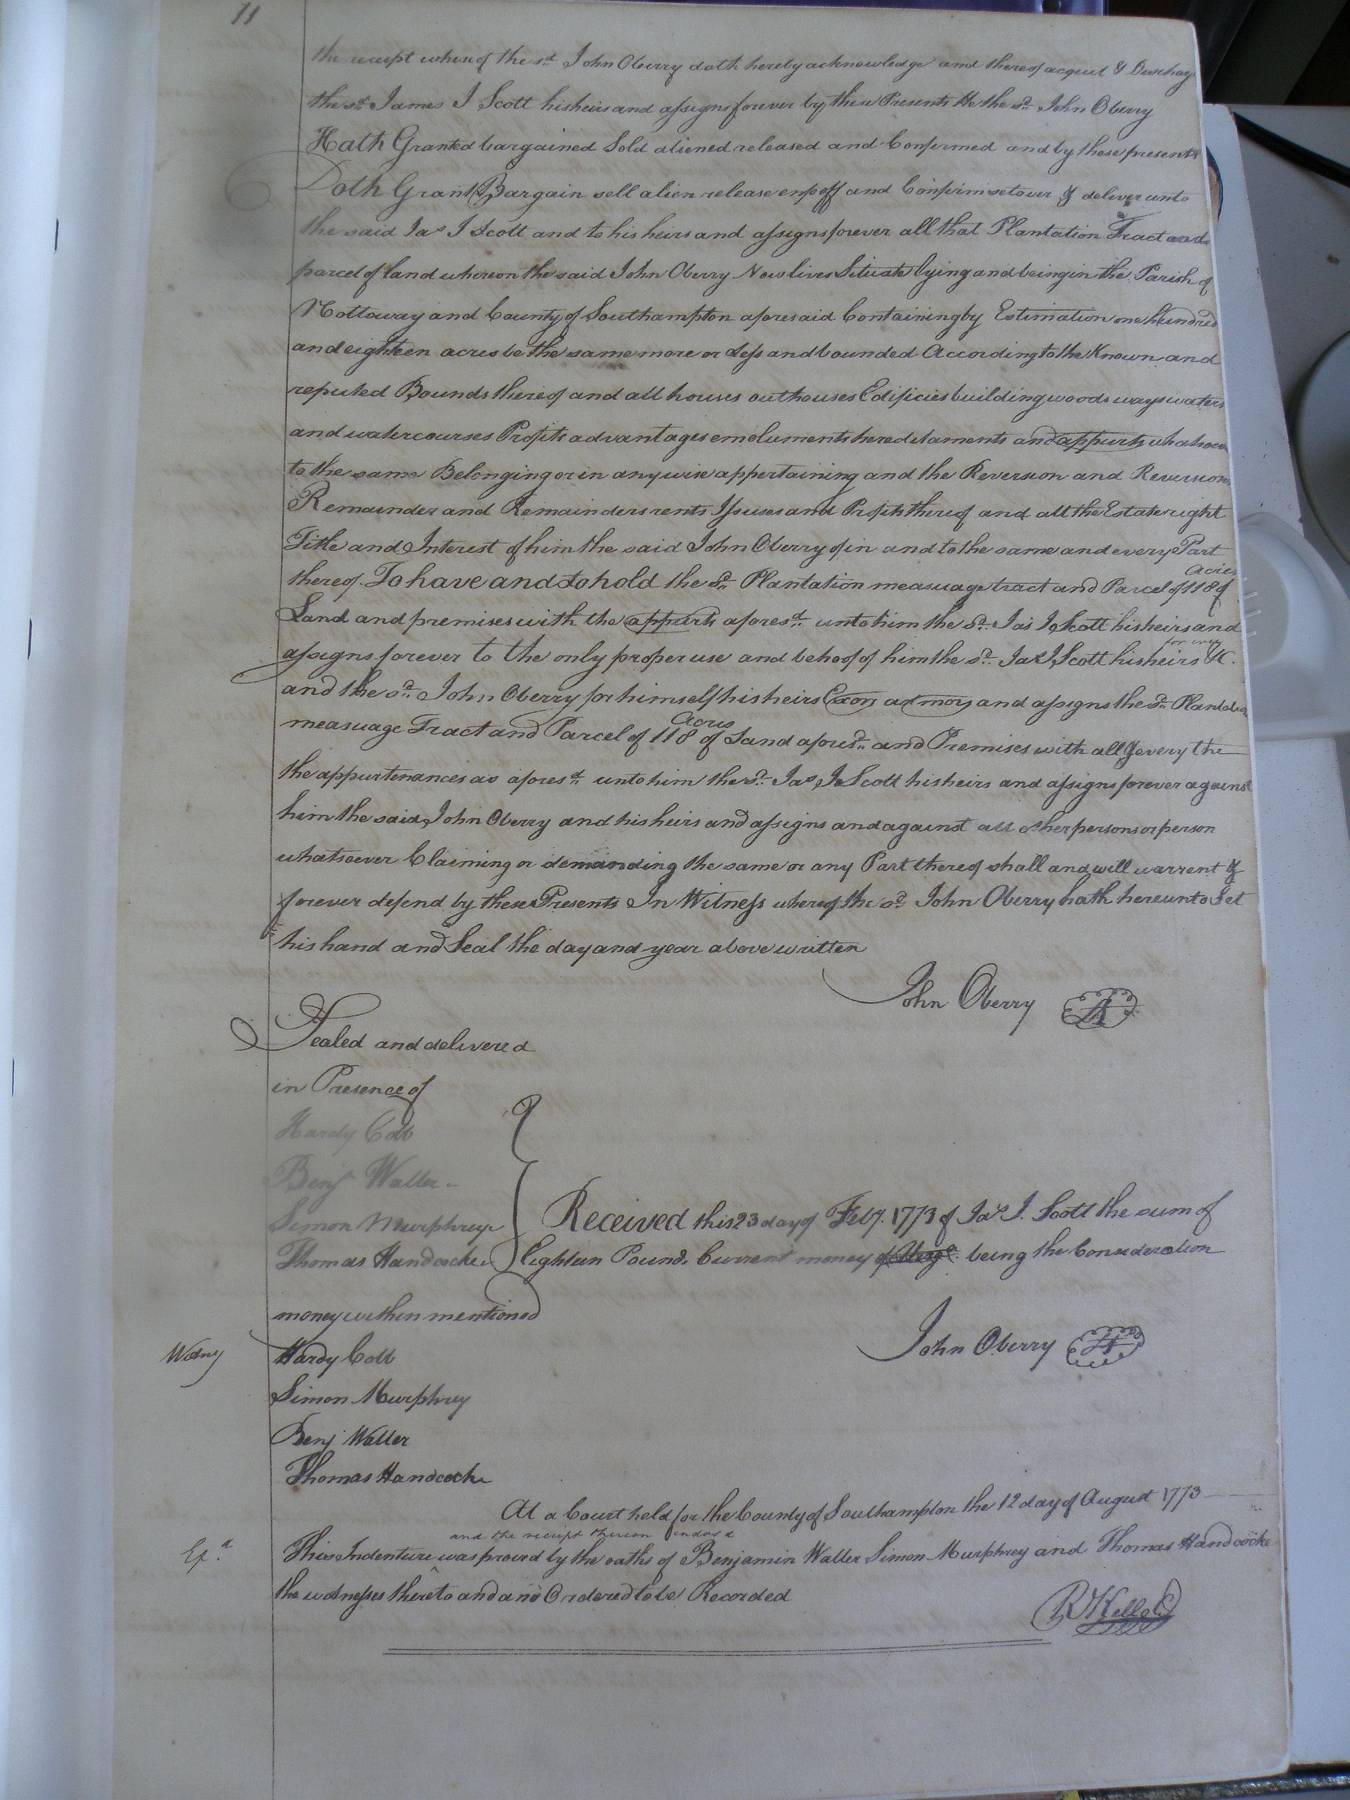 11
the receipt whereof the sd. John Oberry doth hereby acknowledge and thereof acquit & Discharge
the sd. James J Scott his heirs and assigns forever by these Presents He the sd. John Oberry
Hath Granted bargained Sold aliened released and Confirmed and by these presents
Doth Grant Bargain sell alien release enfeoff and Confirm set over & deliver unto
the said Jas J Scott and to his heirs and assigns forever all that Plantation Tract and
parcel of land whereon the said John Oberry Now lives Situate lying and being in the Parish of
Nottoway and County of Southampton aforesaid Containing by Estimation one hundred
and eighteen acres be the same more or less and bounded According to the Known and
reputed Bounds thereof and all houses outhouses Edificies building woods ways waters
and watercourses Profits advantages emoluments hereditaments and appurts whatsoever
to the same Belonging or in any wise appertaining and the Reversion and Reversions
Remainder and Remainders rents Issues and Profits thereof and all the Estate right
Title and Interest of him the said John Oberry of in and to the same and every Part
thereof To have and to hold the sd. Plantation measuage tract and Parcel of 118 Acres of
Land and premises with the appurts aforesd. unto him the sd. Jas J Scott his heirs and
assigns forever to the only proper use and behoof of him the sd. Jas J Scott his heirs &C. for ever
and the sd. John Oberry for himself his heirs Exors admors and assigns the sd. Plantation
measuage Tract and Parcel of 118 Acres of Land aforesd. and Premises with all & every the
the appurtenances as aforesd. unto him the sd. Jas J Scott his heirs and assigns forever against
him the said John Oberry and his heirs and assigns and against all other persons or person
whatsoever Claiming or demanding the same or any Part thereof shall and will warrent &
forever defend by these Presents In Witness whereof the sd. John Oberry hath hereunto Set
his hand and Seal the day and year above written
John Oberry
Sealed and delivered
in Presence of
Hardy Cobb
Benj Waller
Simon Murphrey
Thomas Handcocke
Received this 23 day of Feby. 1773 of Jas J. Scott the sum of
Eighteen Pounds Current money of Virga being the Consideration
money within mentioned
John Oberry
Hardy Cobb
Simon Murphrey
Benj Waller
Thomas Handcocke
At a Court held for the County of Southampton the 12 day of August 1773
and the receipt thereon indosd
This Indenture was proved by the oaths of Benjamin Waller Simon Murphrey and Thomas Handcocke
the witnesses thereto and and Ordered to be Recorded